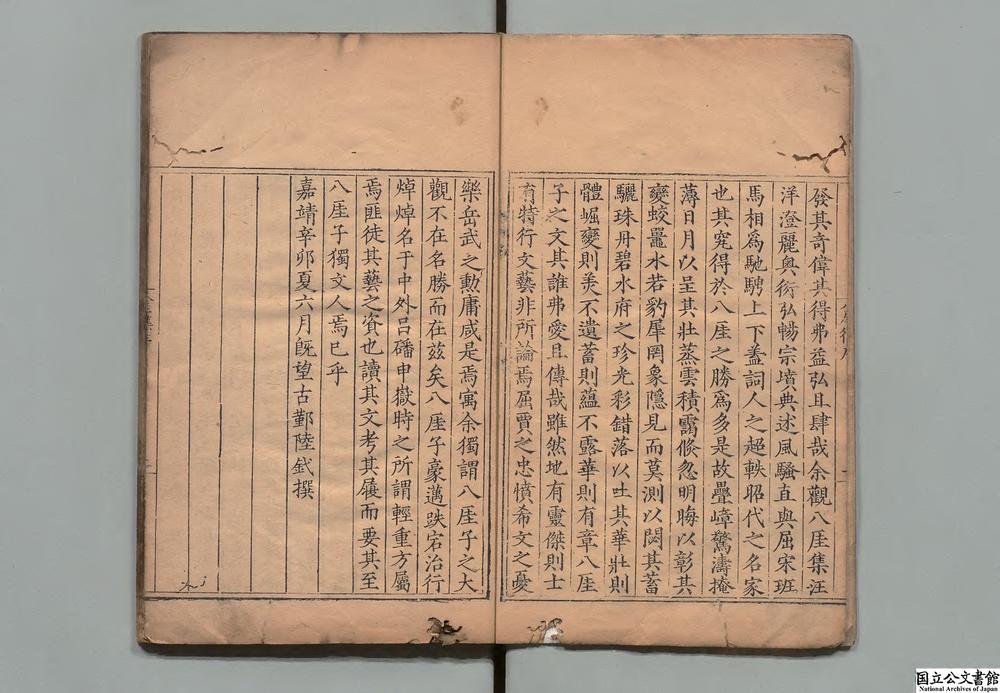 發其奇偉其得弗益弘且肆哉余觀八厓集汪
洋澄麗奥衍弘暢宗墳典述風騷直與屈宋班
馬相爲馳騁上下葢詞人之超軼昭代之名家
也其究得於八厓之勝爲多是故疊嶂驚濤掩
薄日月以呈其壯蒸雲積靄倐忽明晦以彰其
變蛟鼉水若豹犀罔象隱見而莫測以閟其蓄
驪珠丹碧水府之珍光彩錯落以吐其華壯則
體崛變則羙不遺蓄則蘊不露華則有章八厓
子之文其誰弗愛且傳哉雖然地有靈傑則士
有特行文藝非所論焉屈賈之忠憤希文之憂
樂岳武之勲庸咸是焉寓余獨謂八厓子之大
觀不在名勝而在兹矣八厓子豪邁跌宕治行
焯焯名于中外吕磻申嶽時之所謂輕重方屬
焉匪徒其藝之資也讀其文考其履而要其至
八厓子獨文人焉已乎
嘉靖辛卯夏六月旣望古鄞陸釴撰
国立公文書館
National Archives of Japan